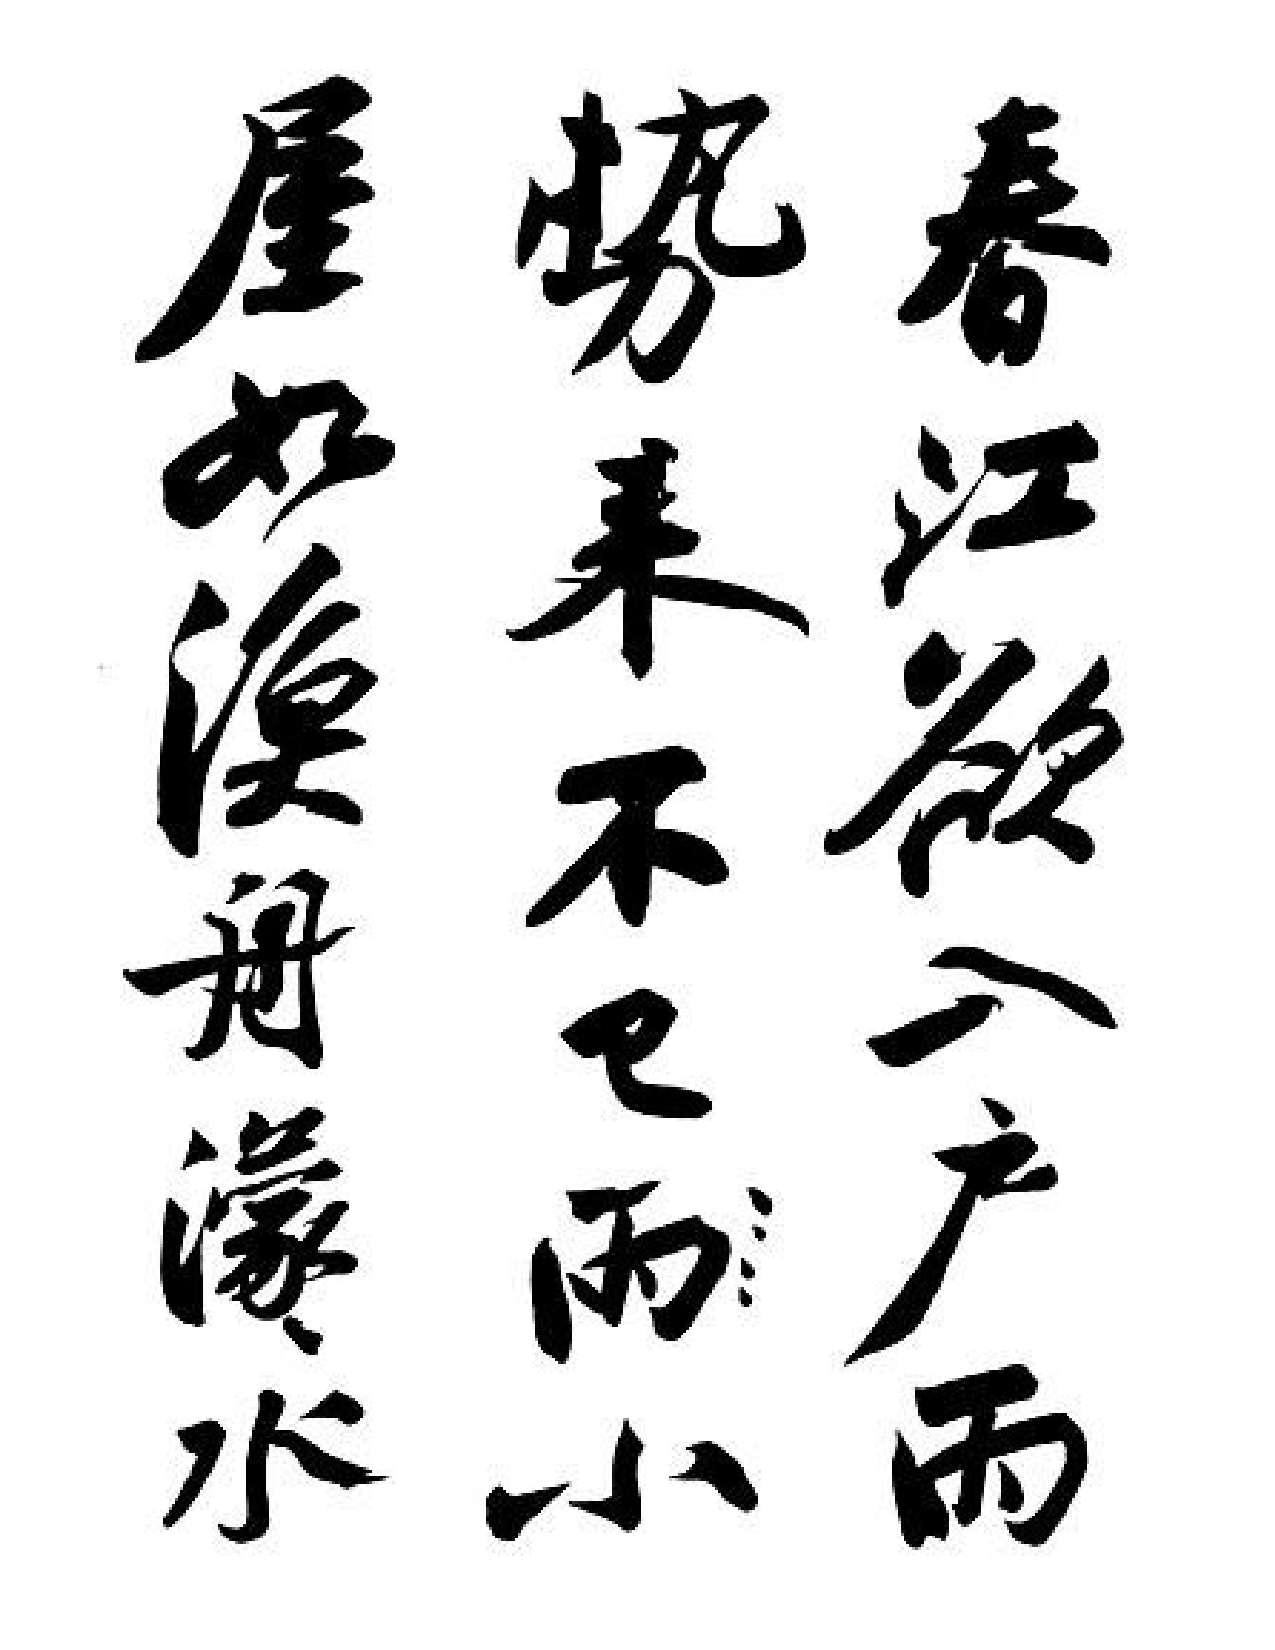 春江欲入户雨
势来不已雨小
屋如渔舟濛〻水